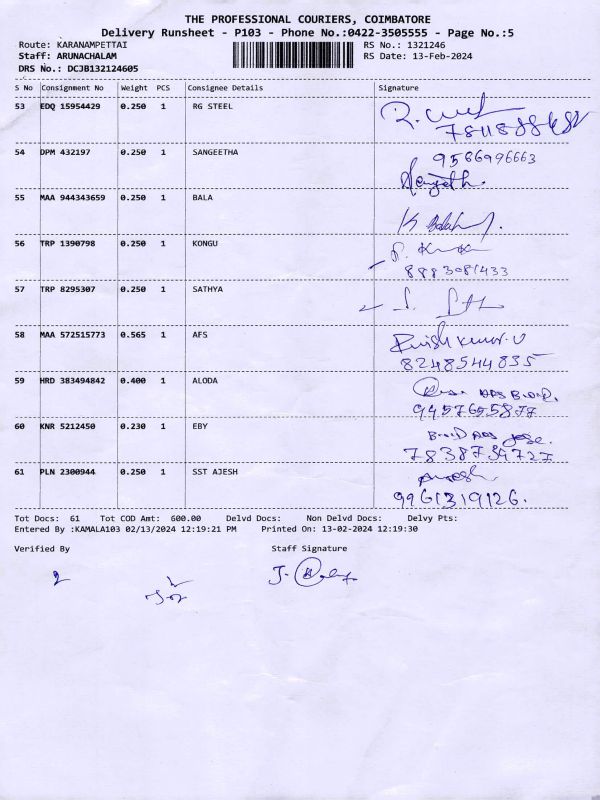 THE PROFESSIONAL COURIERS, COIMBATORE
Delivery Runsheet - P103 - Phone No.:0422-3505555 - Page No.:5
Route: KARANAMPETTAI RS No.: 1321246
Staff: ARUNACHALAM RS Date: 13-Feb-2024
DRS No.: DCJB132124605
S No Consignment No Weight PCS Consignee Details Signature
53 EDQ 15954429 0.250 1 RG STEEL
54 DPM 432197 0.250 1 SANGEETHA 9586996663
Sangeeth.
55 MAA 944343659 0.250 1 BALA
56 TRP 1390798 0.250 1 KONGU
8883081433
57 TRP 8295307 0.250 1 SATHYA
58 MAA 572515773 0.565 1 AFS
8248544835
59 HRD 383494842 0.400 1 ALODA
9457655877
60 KNR 5212450 0.230 1 EBY
7838734727
61 PLN 2300944 0.250 1 SST AJESH
9961319126.
Tot Docs: 61 Tot COD Amt: 600.00 Delvd Docs: Non Delvd Docs: Delvy Pts:
Entered By :KAMALA103 02/13/2024 12:19:21 PM Printed On: 13-02-2024 12:19:30
Verified By Staff Signature